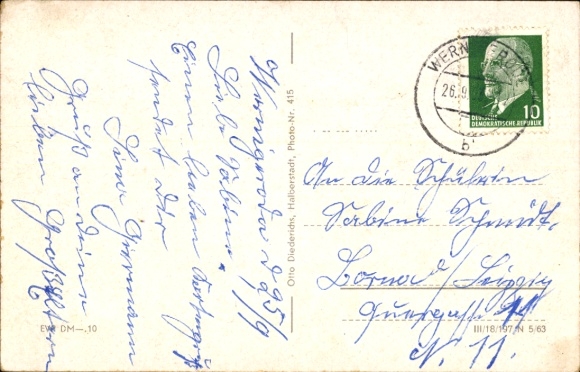 Wernigerode d 25/9
Liebe Sabine.
Einen lieben Kartengruß
sendet Dir
Deine
Gruß an deine
lieben Großeltern
EVP DM —.10
Otto Diederichs, Halberstadt, Photo-Nr. 415
WERN
26.9.
b
10
DEUTSCHE
DEMOKRATISCHE REPUBLIK
An die Schülerin
Sabine Schmidt.
Borna d/ Leipzig
Quergasse
N. 11.
III/18/197 N 5/63